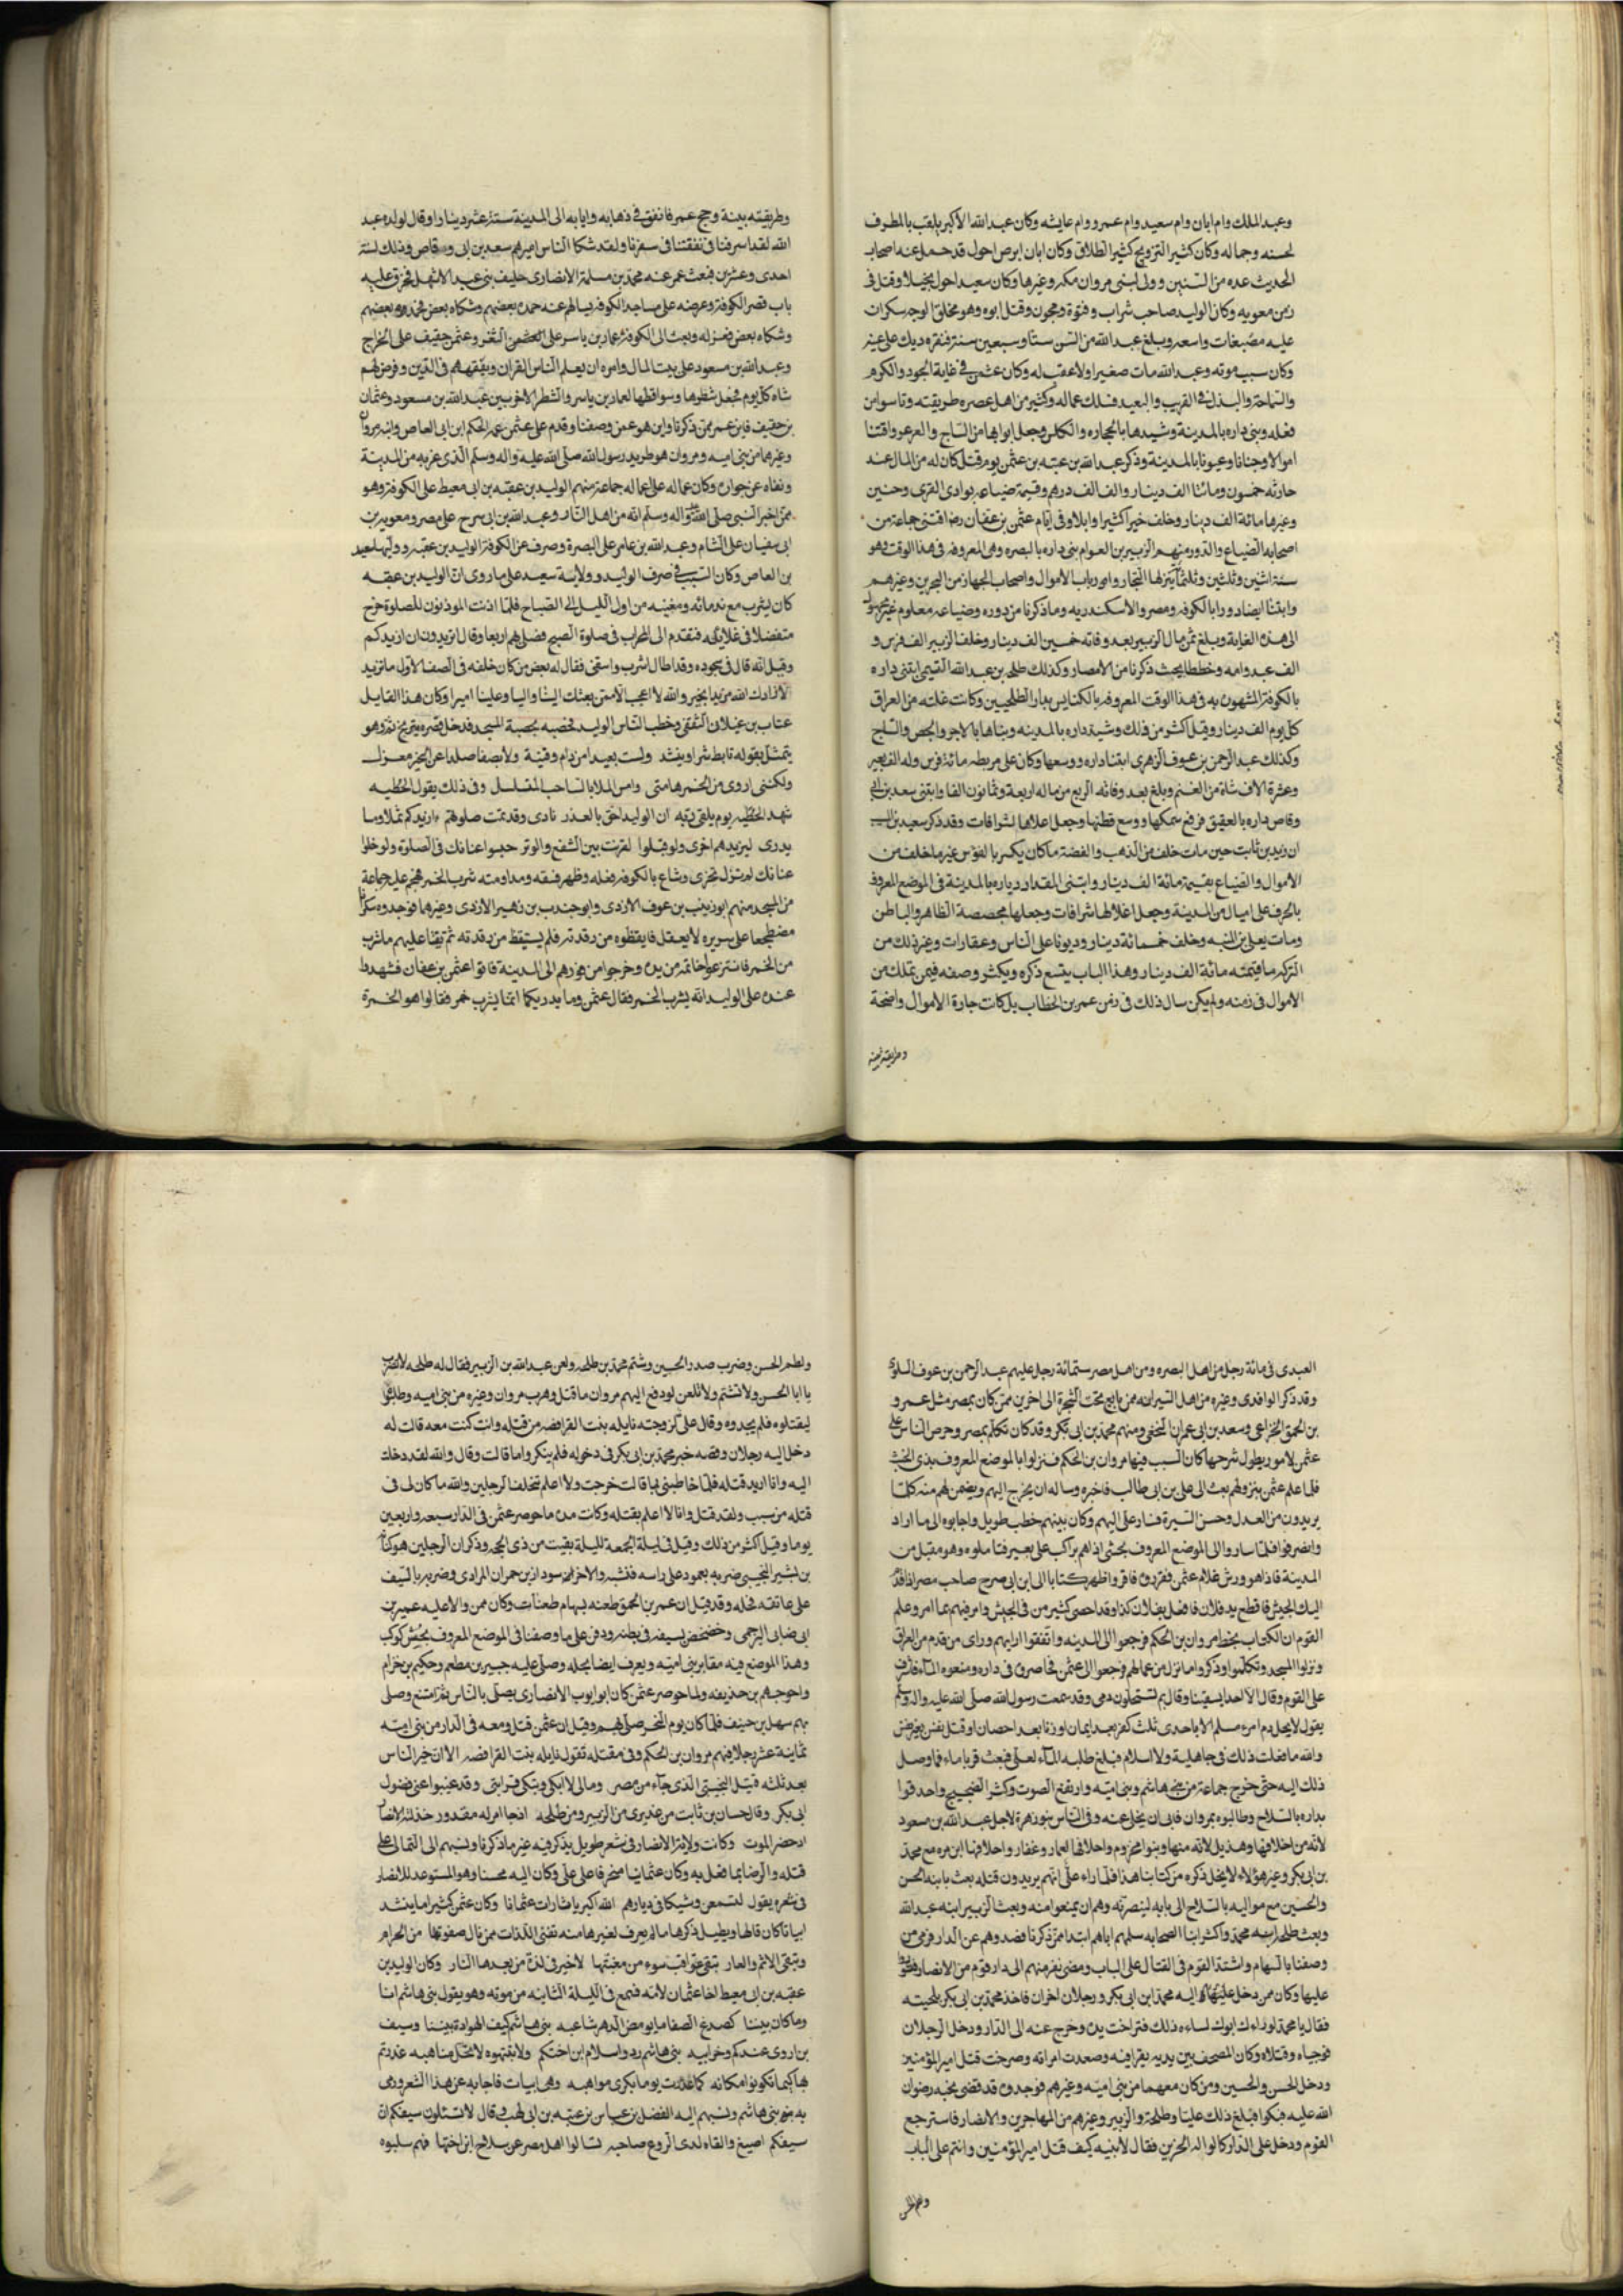 وعبد الملك وام ابان وام سعيد وام عمرو وام عايشه وكان عبد الله الأكبر يلقب بالمطرف
لحسنه وجماله وكان كثير التزويج كثير الطلاق وكان ابان ابرص احول قد حمل عنه اصحاب
الحديث عده من السنين وولى لبنى مروان مكه وغيرها وكان سعيد احول بخيلا وقتل فى
زمن معويه وكان الوليد صاحب شراب وفتوة ومجون وقتل ابوه وهو مخلق الوجه سكران
عليه مصبغات واسعه وبلغ عبد الله من السن ستا وسبعين سنة فنقره ديك على عينه
وكان سبب موته وعبد الله مات صغيرا ولا عقب له وكان عثمن فى غاية الجود والكرم
والسماحة والبذل فى القريب والبعيد فسلك عماله وكثير من اهل عصره طريقته وتاسوا من
فعله وبنى داره بالمدينة وشيدها بالحجاره والكلس وجعل ابوابها من الساج والعرعر واقتنا
اموالا وجنانا وعيونا بالمدينة وذكر عبد الله بن عتبه بن عثمن يوم قتل كان له من المال عند
خازنه خمسون ومائتا الف دينار والف الف درهم وقيمة ضياعه بوادى القرى وحنين
وغيرها مائة الف دينار وخلف خيرا كثيرا وابلا وفى ايام عثمن بن عفان رضا اقتنى جماعة من
اصحابه الضياع والدور منهم الزبير بن العوام بنى داره بالبصره وهى المعروفه فى هذا الوقت وهو
سنة اثنين وثلثين وثلثمائة ينزلها التجار وارباب الاموال واصحاب الجهاز من البحرين وغيرهم
وابتنا ايضا دورا بالكوفه ومصر والاسكندريه وما ذكرنا من دوره وضياعه معلوم غير مجهول
الى هذه الغاية وبلغ ثمن مال الزبير بعد وفاته خمسين الف دينار وخلف الزبير الف فرس و
الف عبد وامه وخططا بحيث ذكرنا من الامصار وكذلك طلحه بن عبد الله التيمى ابتنى داره
بالكوفة المشهون به فى هذا الوقت المعروفه بالكناس بدار الطلحيين وكانت غلته من العراق
كل يوم الف دينار وقيل اكثر من ذلك وشيد داره بالمدينه وبناها بالاجر والجص والساج
وكذلك عبد الرحمن بن عوف الزهرى ابتنا داره ووسعها وكان على مربطه مائة فرس وله الف بعير
وعشرة الاف شاة من الغنم وبلغ بعد وفاته الربع من ماله اربعة وثمانون الفا وابتنى سعد بن ابى
وقاص داره بالعقيق فرفع سمكها ووسع قطنها وجعل اعلاها شرافات وقد ذكر سعيد بن
ان زيد بن ثابت حين مات خلف من الذهب والفضة ما كان يكسر بالفؤس غير ما خلف من
الاموال والضياع بقيمة مائة الف دينار وابتنى المقداد دياره بالمدينة فى الموضع المعروف
بالجرف على اميال من المدينة وجعل اعلالها شرافات وجعلها مجصصة الظاهر والباطن
ومات يعلى بن المنبه وخلف خمسمائة دينار وديونا على الناس وعقارات وغير ذلك من
التركه ما قيمته مائة الف دينار وهذا الباب يتسع ذكره ويكثر وصفه فيمن تملك من
الاموال فى زمنه ولم يكن سال ذلك فى زمن عمر بن الخطاب بل كات جارة الاموال واضحة
وطريقته بينه
وطريقته بينة وحج عمر فانفق فى ذهابه وايابه الى المدينة ستة عشر دينارا وقال لولده عبد
الله لقد اسرفنا فى نفقتنا فى سفرنا ولقد شكا الناس اميرهم سعد بن ابى وقاص وذلك لسنة
احدى وعشرين فبعث عمر عنه محمد بن مسلمة الانصارى حليف بنى عبد الاشهل فخرق عليه
باب قصر الكوفة وعرضه على مساجد الكوفه يسالهم عنه حمده بعضهم وشكاه بعض
وشكاه بعض فعزله وبعث الى الكوفة عمار بن ياسر على الثغر وعثمن حنيف على الخراج
وعبد الله بن مسعود على بيت المال وامره ان يعلم الناس القران ويفقههم فى الدين وفرض لهم
شاه كل يوم فجعل شطرها وسواقطها لعمار بن ياسر والشطر الاخر بين عبد الله بن مسعود وعثمان
بن حنيف فاين عمر ممن ذكرنا واين هو عمن وصفنا وقدم على عثمن عمه الحكم ابن ابى العاص وابنه مروان
وغيرهما من بنى اميه ومروان هو طريد رسول الله صلى الله عليه واله وسلم الذى غربه من المدينة
ونفاه عن جواره وكان عماله على اعماله جماعة منهم الوليد بن عقبه بن ابى معيط على الكوفة وهو
ممن اخبر النبى صلى الله واله وسلم انه من اهل النار وعبد الله بن ابى سرح على مصر ومعويه بن
ابى سفيان على الشام وعبد الله بن عامر على البصرة وصرف عن الكوفة الوليد بن عقبه وولها سعيد
بن العاص وكان السبب فى صرف الوليد وولاية سعيد على ما روى ان الوليد بن عقبه
كان يشرب مع ندمائه ومغنيه من اول الليل الى الصباح فلما اذنت الموذنون للصلوة خرج
متفضلا فى غلايله فتقدم الى المحراب فى صلوة الصبح فصلى بهم اربعا وقال اتريدون ان ازيدكم
وقيل انه قال فى سجوده وقد اطال اشرب واسقنى فقال له بعض من كان خلفه فى الصف الاول ما تزيد
لا زادك الله مزيدا بخير والله لا اعجب الا ممن بعثك الينا واليا وعلينا اميرا وكان هذا القايل
عتاب بن غيلان الثقفى وخطب الناس الوليد فحصبه بحصبة المسجد فدخل قصره يترنح وهو
يتمثل بقوله تابط شرا وينشد ولست بعيدا من دام وقينة ولا بصفا صلدا عن الخير معزل
ولكننى اروى من الخمر هامتى وامسى الملا بالساحب المتسلسل وفى ذلك يقول الحطيه
شهد الحطيه يوم يلقى ربه ان الوليد احق بالعذر نادى وقد تمت صلوتهم ءازيدكم ثملا وما
يدرى ليزيدهم اخرى ولو قبلوا لقرنت بين الشفع والوتر حبسوا عنانك فى الصلوة ولو خلوا
عنانك لم تزل تجرى وشاع بالكوفه فعله وظهر فسقه ومداومته شرب الخمر فهجم عليه جماعة
من المسجد منهم ابو زينب بن عوف الازدى وابو جندب بن زهير الازدى وغيرهما فوجدوه سكرانا
مضطجعا على سريره لا يعقل فايقظوه من رقدته فلم يستيقظ من رقدته ثم تقيا عليهم ما شرب
من الخمر فانتزعوا خاتمه من يده وخرجوا من فورهم الى المدينة فاتوا عثمن بن عفان فشهدوا
عنده على الوليد انه يشرب الخمر فقال عثمن وما يدريكما انما يشرب خمر فقالوا هو الخمرة
العبدى فى مائة رجل من اهل البصره ومن اهل مصر ستمائة رجل عليهم عبد الرحمن بن عوف البلوى
وقد ذكر الواقدى وغيره من اهل السير انه ممن بايع تحت الشجرة الى اخرين ممن كان بمصر مثل عمرو
بن الحمق الخزاعى وسعد بن ابى عمران النخعى ومنهم محمد بن ابى بكر وقد كان تكلم بمصر وحرص الناس على
عثمن لامور يطول شرحها كان السبب فيها مروان بن الحكم فنزلوا بالموضع المعروف بذى الخشب
فلما علم عثمن بنزولهم بعث الى على بن ابى طالب فاخبره وساله ان يخرج اليهم ويضمن لهم منه كلما
يريدون من العدل وحسن السيرة فسار على اليهم وكان بينهم خطب طويل واجابوه الى ما اراد
وانصرفوا فلما ساروا الى الموضع المعروف بحشى اذا هم براكب على بعير فتاملوه وهو مقبل من
المدينة فاذا هو ورش غلام عثمن فقرروه فاقر واظهر كتابا الى ابن ابى صرح صاحب مصر اذا قدم
اليك الجيش فاقطع يد فلان وافعل بفلان كذا وقد احصى كثير من فى الجيش وامر فيهم بما امر وعلم
القوم ان الكتاب بخط مروان بن الحكم فرجعوا الى المدينه واتفقوا رايهم وراى من قدم من العراق
ونزلوا المسجد وتكلموا وذكروا ما نزل من عمالهم فرجعوا الى عثمن فحاصروه فى داره ومنعوه الماء فاشرف
على القوم وقال الا احد يسقينا وقال بم تستحلون دمى وقد سمعت رسول الله صلى الله عليه واله وسلم
يقول لا يحل دم امرء مسلم الا باحدى ثلث كفر بعد ايمان او زنا بعد احصان او قتل نفس بغير نفس
والله ما فعلت ذلك فى جاهلية ولا اسلام فبلغ طلبه الماء لعلى فبعث قربا ماء فما وصل
ذلك اليه حتى خرج جماعة من بنى هاشم وبنى اميه وارتفع الصوت وكثر الضجيج واحدقوا
بداره بالسلاح وطالبوه بمروان فابى ان يخلى عنه وفى الناس بنو زهرة لاجل عبد الله بن مسعود
لانه من احلافها وهذيل لانه منها وبنو مخزوم واحلافها لعمار وغفار واحلافها ابن مره مع محمد
بن ابى بكر وغير هؤلاء لا يحل ذكره من كتابنا هذا فلما راء على انهم يريدون قتله بعث بابنه الحسن
والحسين مع مواليه بالسلاح الى بابه لينصرته وهم ان يمنعوا منه وبعث الزبير ابنه عبد الله
وبعث طلحه ابنه محمد واكثر ابنا الصحابه سلمهم اباهم ابتدا ممن ذكرنا فصدوهم عن الدار فرمى من
وصفنا بالسهام واشتد القوم فى القتال على الباب ومضى نفر منهم الى دار قوم من الانصار
عليها وكان ممن دخل عليه محمد ابن ابى بكر ورجلان اخران فاخذ محمد بن ابى بكر بلحيته
فقال يا محمد لو راك ابوك لساءه ذلك فتراخت يده وخرج عنه الى الدار ودخل الرجلان
فوجياه وقتلاه وكان المصحف بين يديه يقرا فيه وصعدت امراته وصرخت قتل امير المؤمنين
ودخل الحسن والحسين ومن كان معهما من بنى اميه وغيرهم فوجدوه قد قضى نحبه رضوان
الله عليه فبكوا فبلغ ذلك عليا وطلحة والزبير وغيرهم من المهاجرين والانصار فاسترجع
القوم ودخل على الدار كالواله الحزين فقال لابنيه كيف قتل امير المؤمنين وانتم على الباب
ولطم الحسن
ولطم الحسن وضرب صدر الحسين وشتم محمد بن طلحه ولعن عبد الله بن الزبير فقال له طلحه لا تضرب
يا ابا الحسن ولا تشتم ولا تلعن لو دفع اليهم مروان ما قتل وهرب مروان وغيره من بنى اميه وطلبوا
ليقتلوه فلم يجدوه وقال على لزوجته نايله بنت الفرافصه من قتله وانت كنت معه قالت له
دخل اليه رجلان وقصه خبر محمد بن ابى بكر فى دخوله فلم ينكر واما قالت وقال والله لقد دخلت
اليه وانا اريد قتله فلما خاطبنى بما قالت خرجت ولا اعلم تخلف الرجلين والله ما كان لى فى
قتله من سبب ولقد قتل وانا لا اعلم بقتله وكانت مده ما حوصر عثمن فى الدار سبعه واربعين
يوما وقيل اكثر من ذلك وقيل فى ليلة الجمعة لليلة بقيت من ذى الحجه وذكر ان الرجلين هو كنانه
بن بشير التجيبى ضربه بعمود على راسه فشجه والاخر سودان بن حمران المرادى وضربه بالسيف
على عاتقه فحله وقد قيل ان عمر بن الحمق طعنه بسهام طعنات وكان ممن والا عليه عمير بن
ابى ضابى البرجمى وخضخض بسيفه فى بطنه ودفن على ما وصفنا فى الموضع المعروف بحش كوكب
وهذا الموضع فيه مقابر بنى اميه ويعرف ايضا بحله وصلى عليه جبير بن مطعم وحكيم بن خزام
واحوجهم بن حذيفه ولما حوصر عثمن كان ابو ايوب الانصارى يصلى بالناس ثم امتنع وصلى
بهم سهل بن حنيف فلما كان يوم النحر صلى بهم وقيل ان عثمن قتل ومعه فى الدار من بنى اميه
ثمانية عشر رجلا فيهم مروان بن الحكم وفى مقتله تقول نايله بنت الفرافصه الا ان خير الناس
بعد ثلثه قتيل التجيبى الذى جاء من مصر ومالى لا ابكى وتبكى قرابتى وقد غيبوا عنى فضول
ابى بكر وقال حسان بن ثابت من عذيرى من الزبير ومن طلحه اذ جا امر له مقدور خذلته الانصار
اذ حضر الموت وكانت ولاية الانصار فى شعر طويل يذكر فيه غير ما ذكرنا ونسبهم الى التمالى على
قتله والرضا بما فعل به وكان عثمانيا منحرفا على على وكان اليه محسنا وهو المستوعد للانصار
فى شعره يقول لتسمعن وشيكا فى ديارهم الله اكبر يا ثارات عثمانا وكان عثمن كثيرا ما ينشد
ابياتا كان قالها ويطيل ذكرها ما لا يعرف لغيرها منه تفنى اللذات ممن نال صفوتها من الحرام
وتبقى الاثم والعار تبقى عواقب سوء من مغبتها لا خير فى لذة من بعدها النار وكان الوليد بن
عقبه بن ابى معيط اخا عثمان لامه فسمع فى الليلة الثانيه من موته وهو يقول بنى هاشم انا
وما كان بيننا كصدع الصفا ما يومض الدهر شاعبه بنى هاشم كيف الهوادة بيننا وسيف
بن اروى عندكم وحرايبه بنى هاشم ردوا سلاح ابن اختكم ولا تنهبوه لا تحل مناهبه غدرتم
به كيما تكونوا مكانه كما غدرت يوما بكرى مرازبه وهى ابيات فاجابه عن هذا الشعر ورمى
به بنى هاشم ونسبهم اليه الفضل بن عباس بن عتبه بن ابى لهب وقال لا تسئلون سيفكم ان
سيفكم اضيع والقاه لدى الروع صاحبه سالوا اهل مصر عن سلاح ابن اختها فهم سلبوه